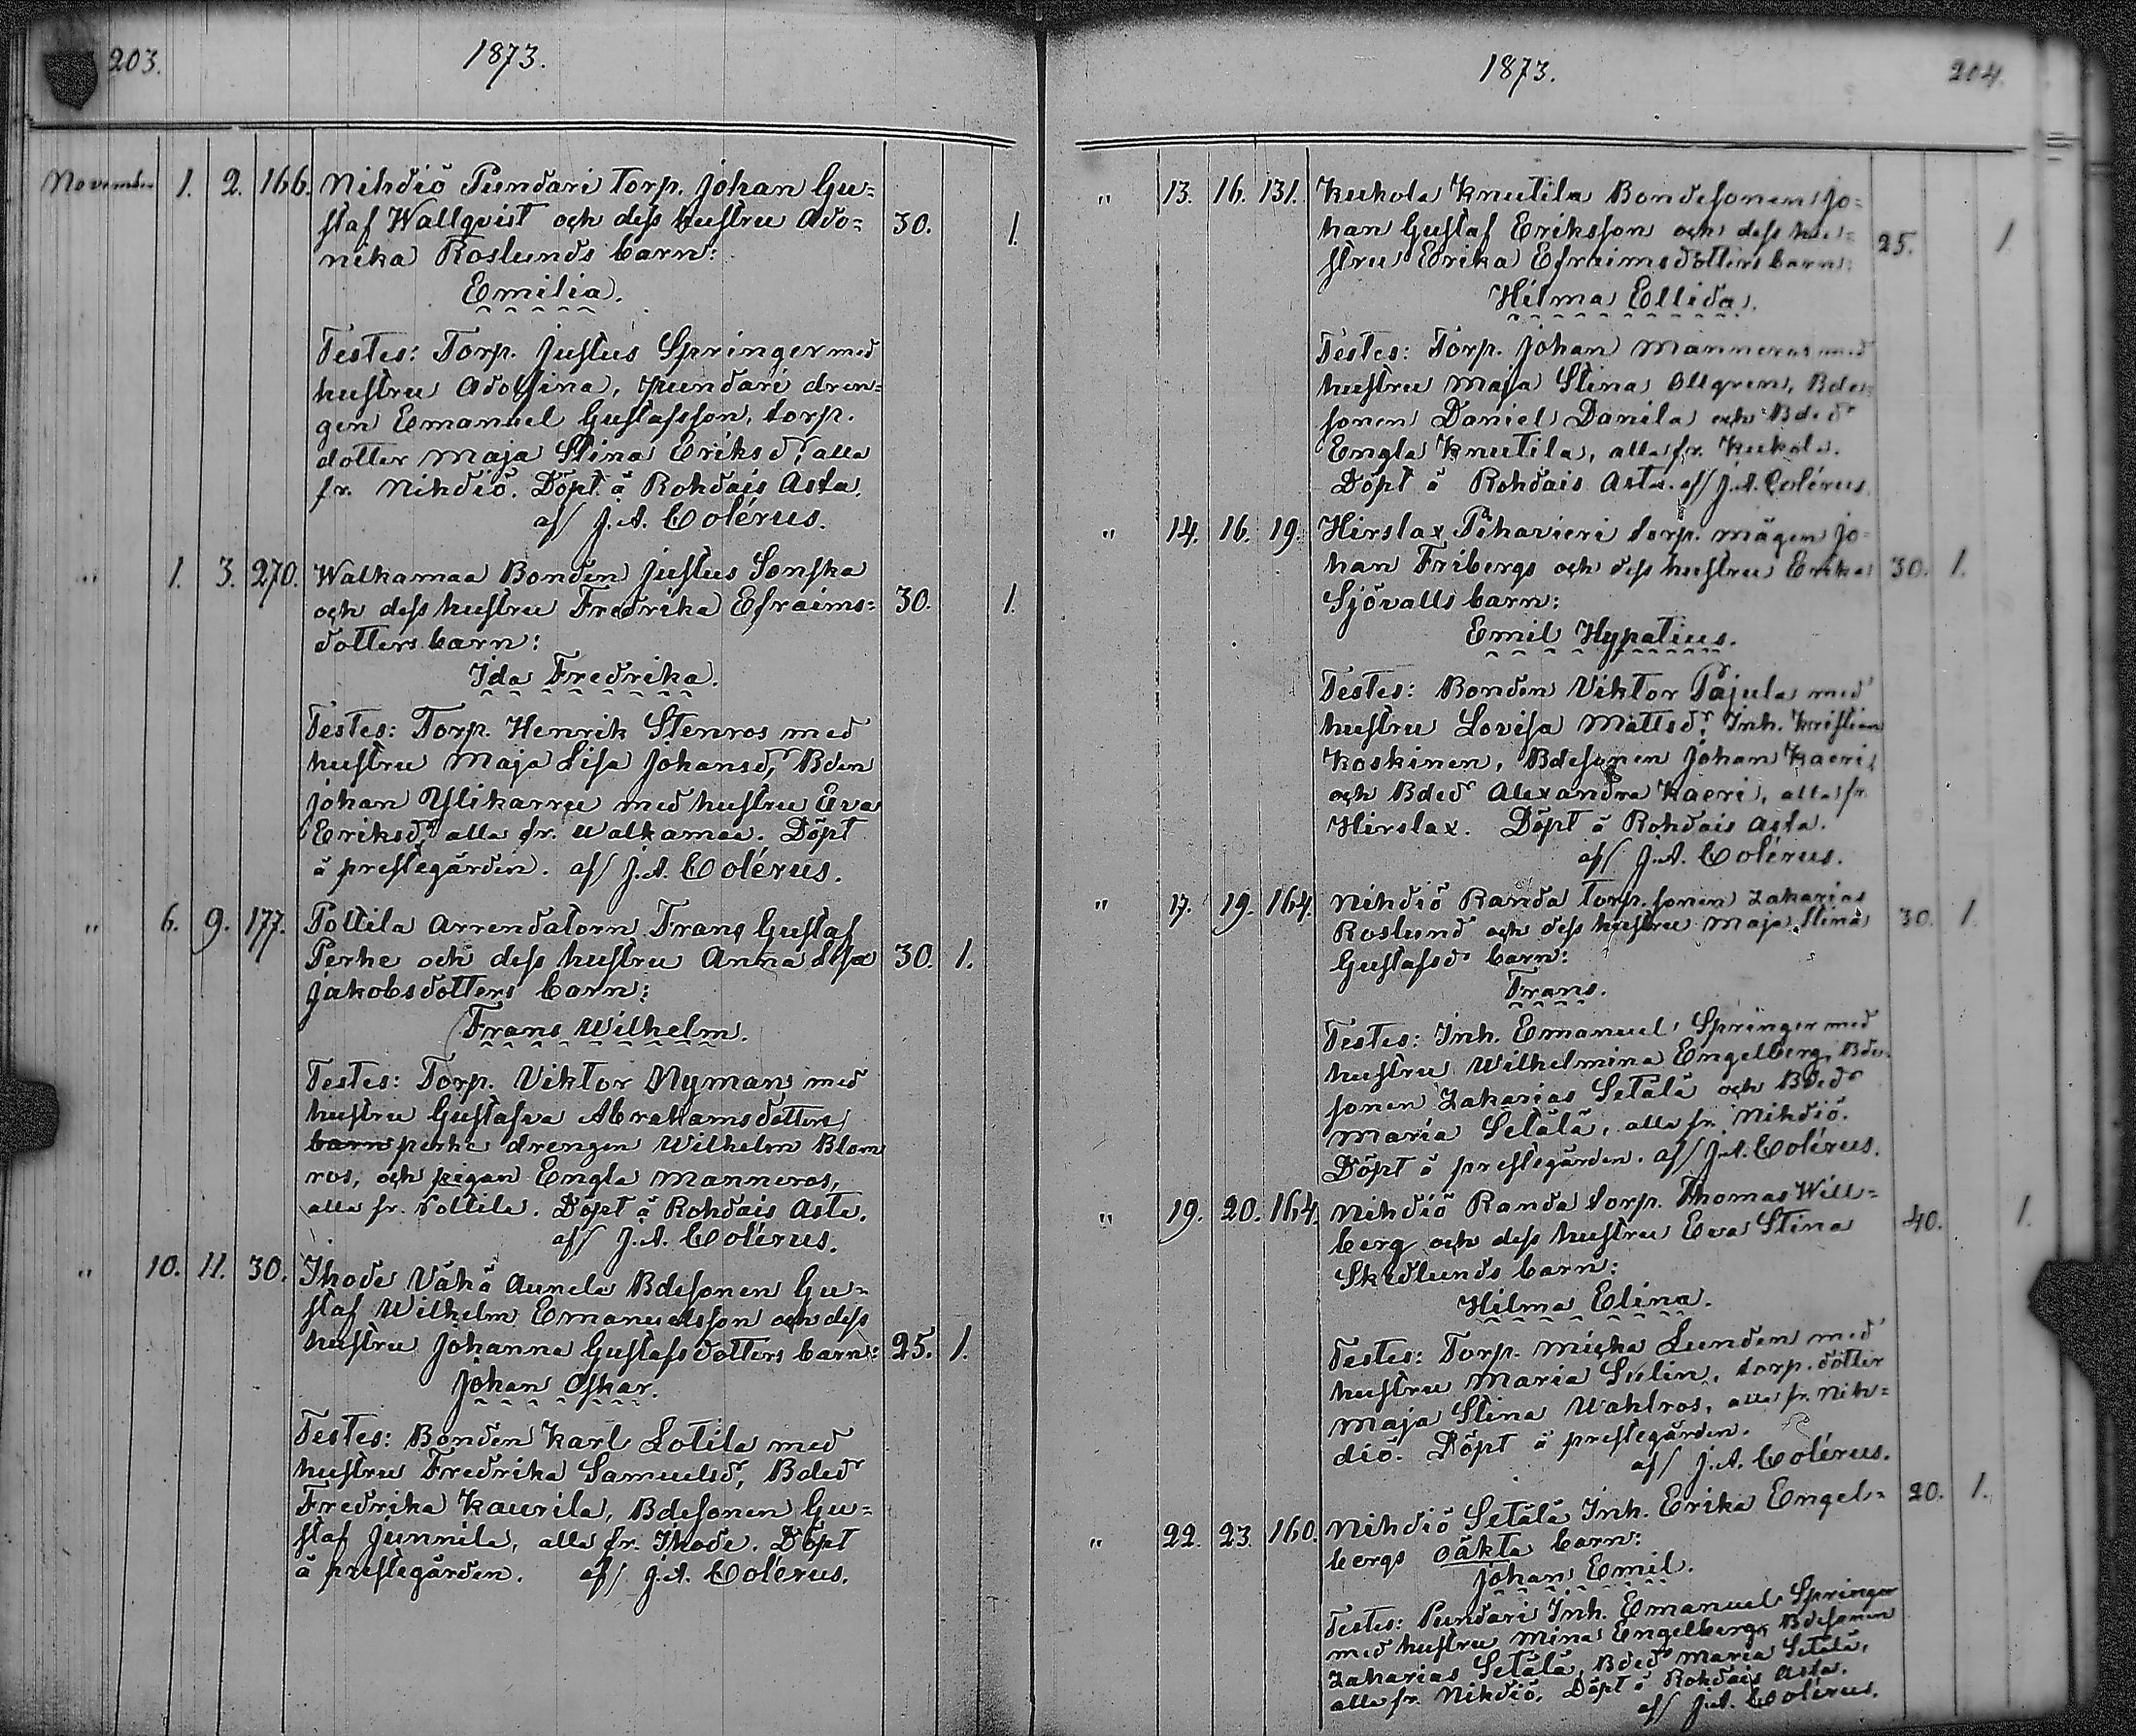 203.
1873.
November 1. 2. 166. Nihdiö Pundari Torp. Johan Gu=
staf Wallqvist och dess hustru Ado= 30. 1.
nika Roslunds barn:
Emilia.
Testes: Torp. Justus Springer med
hustru Adolfina, Pundari dren=
gen Emanuel Gustafsson, torp.
dotter Maja Stina Eriksdr, alla
fr. Nihdiö. Döpt å Rohdais Asta.
af/ J. A. Colérus.
" 1. 3. 270. Walkamaa Bonden Justus Sonska
och dess hustru Fredrika Efraims= 30. 1.
dotters barn:
Ida Fredrika.
Testes: Torp. Henrik Stenros med
hustru Maja Lisa Johansdr, Bden
Johan Ylikarru med hustru Eva
Eriksdr, alla fr. Walkamaa. Döpt
å prestegården. af/ J. A. Colérus.
" 6. 9. 177. Tottila Arrendatorn Frans Gustaf
Perhe och dess hustru Anna Lisa 30. 1.
Jakobsdotters barn:
Frans Wilhelm.
Testes: Torp. Viktor Nyman med
hustru Gustafva Abrahamsdotters
barn perhe drengen Wilhelm Blom
ros, och pigan Engla Manneros,
alla fr. Tottila. Döpt å Rohdais Asta.
af/ J. A. Colérus.
" 10. 11. 30. Ihode Vähä Aunela Bdesonen Gu=
staf Wilhelm Emanuelsson och dess
hustru Johanna Gustafsdotters barn: 25. 1.
Johan Oskar.
Testes: Bonden Karl Lotila med
hustru Fredrika Samuelsdr, Bdedr
Fredrika Kaurila, Bdesonen Gu=
staf Junnila, alla fr. Ihode. Döpt
å prestegården. af/ J. A. Colérus.
1873. 204.
" 13. 16. 131. Kukola Knutila Bondesonen Jo=
han Gustaf Eriksson och dess hu= 25. 1
stru Erika Efraimsdotters barn:
Hilma Ellida.
Testes: Torp. Johan Manneros med
hustru Maja Stina Allgren, Bde
sonen Daniel Danila och Bdedr
Engla Knutila, alla fr. Kukola.
Döpt å Rohdais Asta. af/ J. A. Colérus.
" 14. 16. 19. Hirslax Pihavieri torp. mågen Jo=
han Fribergs och dess hustru Erika 30. 1.
Sjövalls barn:
Emil Hypatius.
Testes: Bonden Viktor Pajula med
hustru Lovisa Mattsdr, Inh. Kristian
Koskinen, Bdesonen Johan Kaeri
och Bdedr Alexandra Kaeri, alla fr.
Hirslax. Döpt å Rohdais Asta.
af/ J. A. Colérus.
" 17. 19. 164. Nihdiö Randa Torp. sonen Zakarias
Roslund och dess hustru Maja Stina 30. 1.
Gustafsdr barn:
Frans.
Testes: Inh. Emanuel Springer med
hustru Wilhelmina Engelberg, Bde
sonen Zakarias Setälä och Bdedr
Maria Setälä, alla fr. Nihdiö.
Döpt å prestegården. af/ J. A. Colérus.
" 19. 20. 164. Nihdiö Randa torp. Thomas Will=
berg och dess hustru Eva Stina 40. 1.
Skedlunds barn:
Hilma Elina.
Testes: Torp. Micka Lunden med
hustru Maria Sulin, torp. dotter
Maja Stina Wahlros, alla fr. Nih=
diö. Döpt å prestegården.
af/ J. A. Colérus.
" 22. 23. 160. Nihdiö Setälä Inh. Erika Engel= 20. 1.
bergs oäkta barn:
Johan Emil.
Testes: Pundari Inh. Emanuel Springer
med hustru Mina Engelberg, Bdesonen
Zakarias Setälä, Bdedr Maria Setälä,
alla fr. Nihdiö. Döpt å Rohdais Asta.
af/ J. A. Colérus.